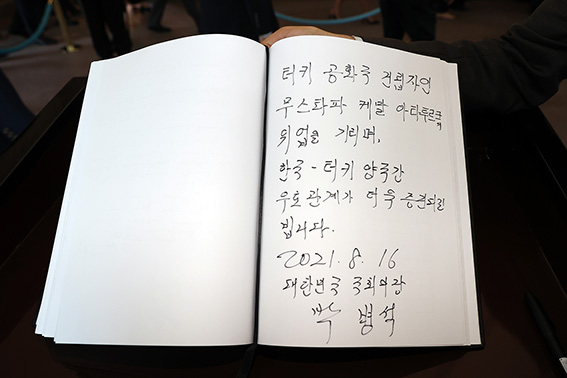 터키 공화국 건립자인
무스타파 케말 아타투르크의
위업을 기리며,
한국-터키 양국간
우호관계가 더욱 증진되길
빕니다.
2021. 8. 16
대한민국 국회의장
박 병 석